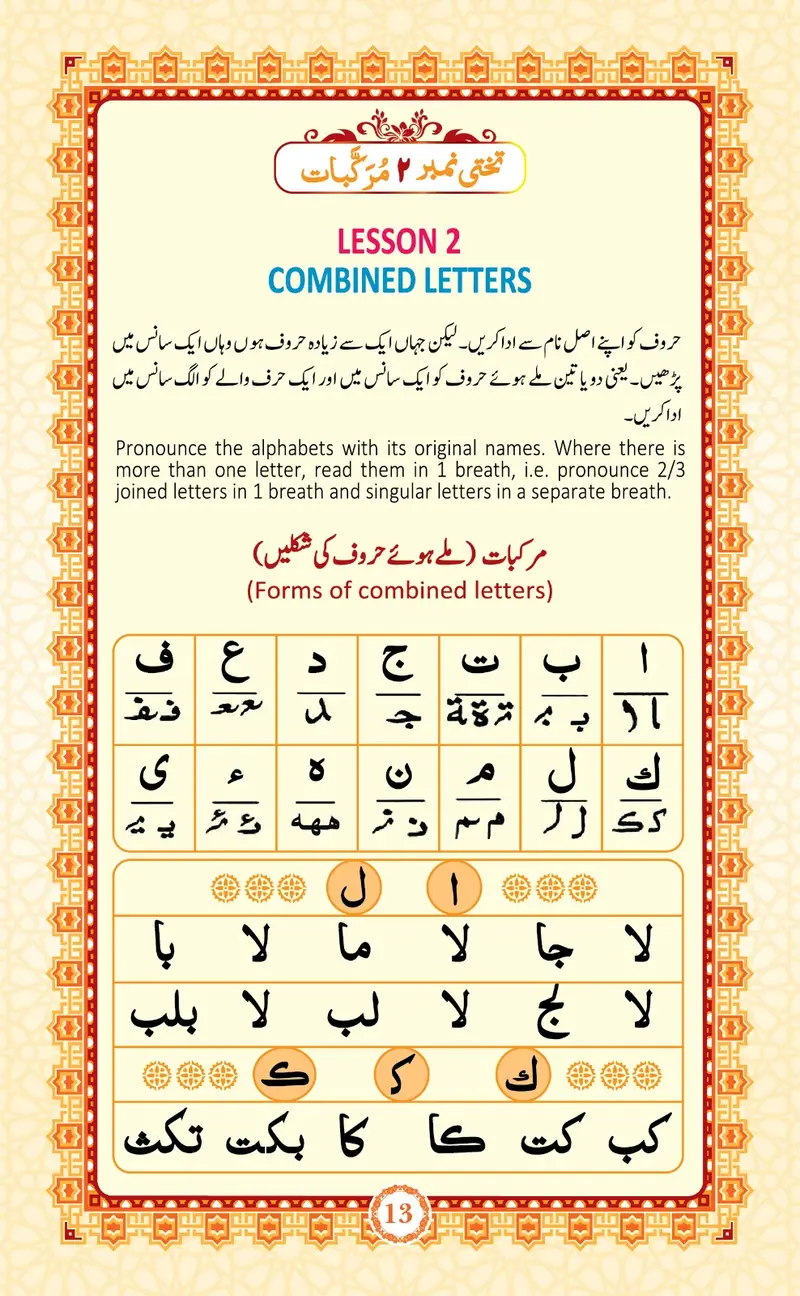 تختی نمبر ۲ مُرَکَّبات
LESSON 2
COMBINED LETTERS
حروف کو اپنے اصل نام سے ادا کریں۔ لیکن جہاں ایک سے زیادہ حروف ہوں وہاں ایک سانس میں
پڑھیں۔ یعنی دو یا تین ملے ہوئے حروف کو ایک سانس میں اور ایک حرف والے کو الگ سانس میں
ادا کریں۔
Pronounce the alphabets with its original names. Where there is
more than one letter, read them in 1 breath, i.e. pronounce 2/3
joined letters in 1 breath and singular letters in a separate breath.
مرکبات (ملے ہوئے حروف کی شکلیں)
(Forms of combined letters)
ا ب ت ج د ع ف
ك ل م ن ه ء ی
ا ل
لا جا لا ما لا با
لا لج لا لب لا بلب
ك ک ڪ
كب كت كا كا بكت تكث
13